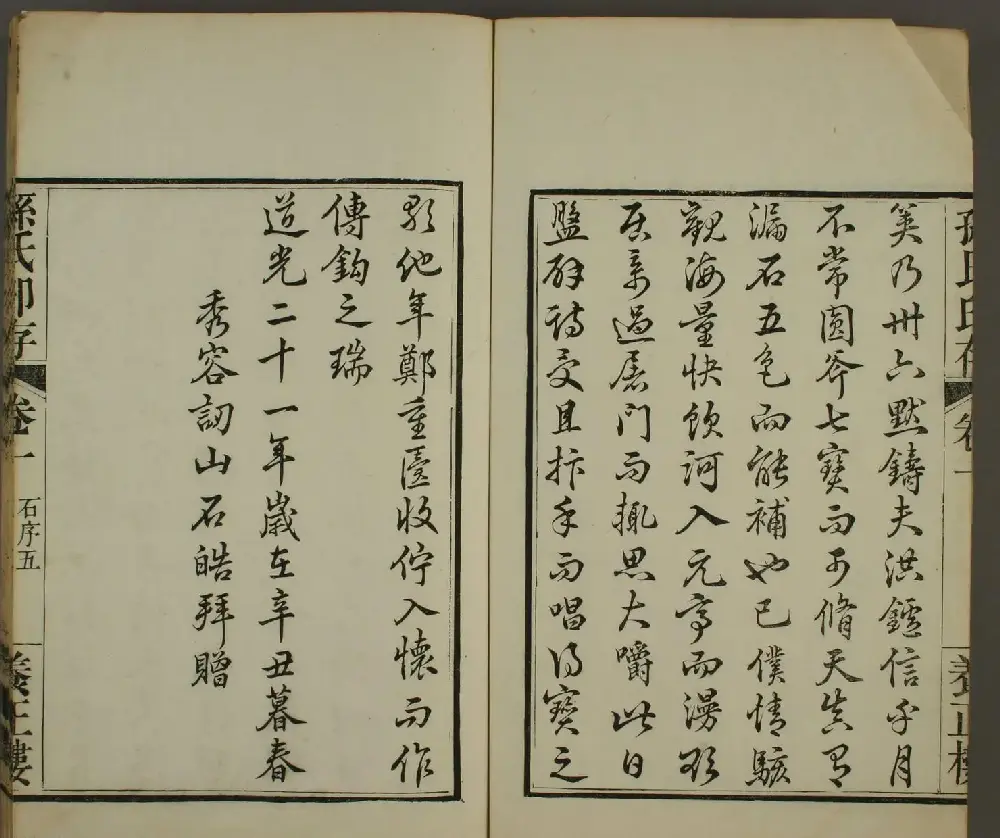 孫氏印存
卷一
養正樓
乃卅六默鑄夫洪鑪信乎月
不常圓斧七寶而可脩天豈有
漏石五色而能補也已僕情駭
觀海量快飲河入元亭而漫欲
居奇過屠門而輒思大嚼此日
交且抃手而唱得寶之
歌他年鄭重收佇入懷而作
傳鉤之瑞
道光二十一年歲在辛丑暮春
秀容訒山石皓拜贈
孫氏印存
卷一
石序五
養正樓